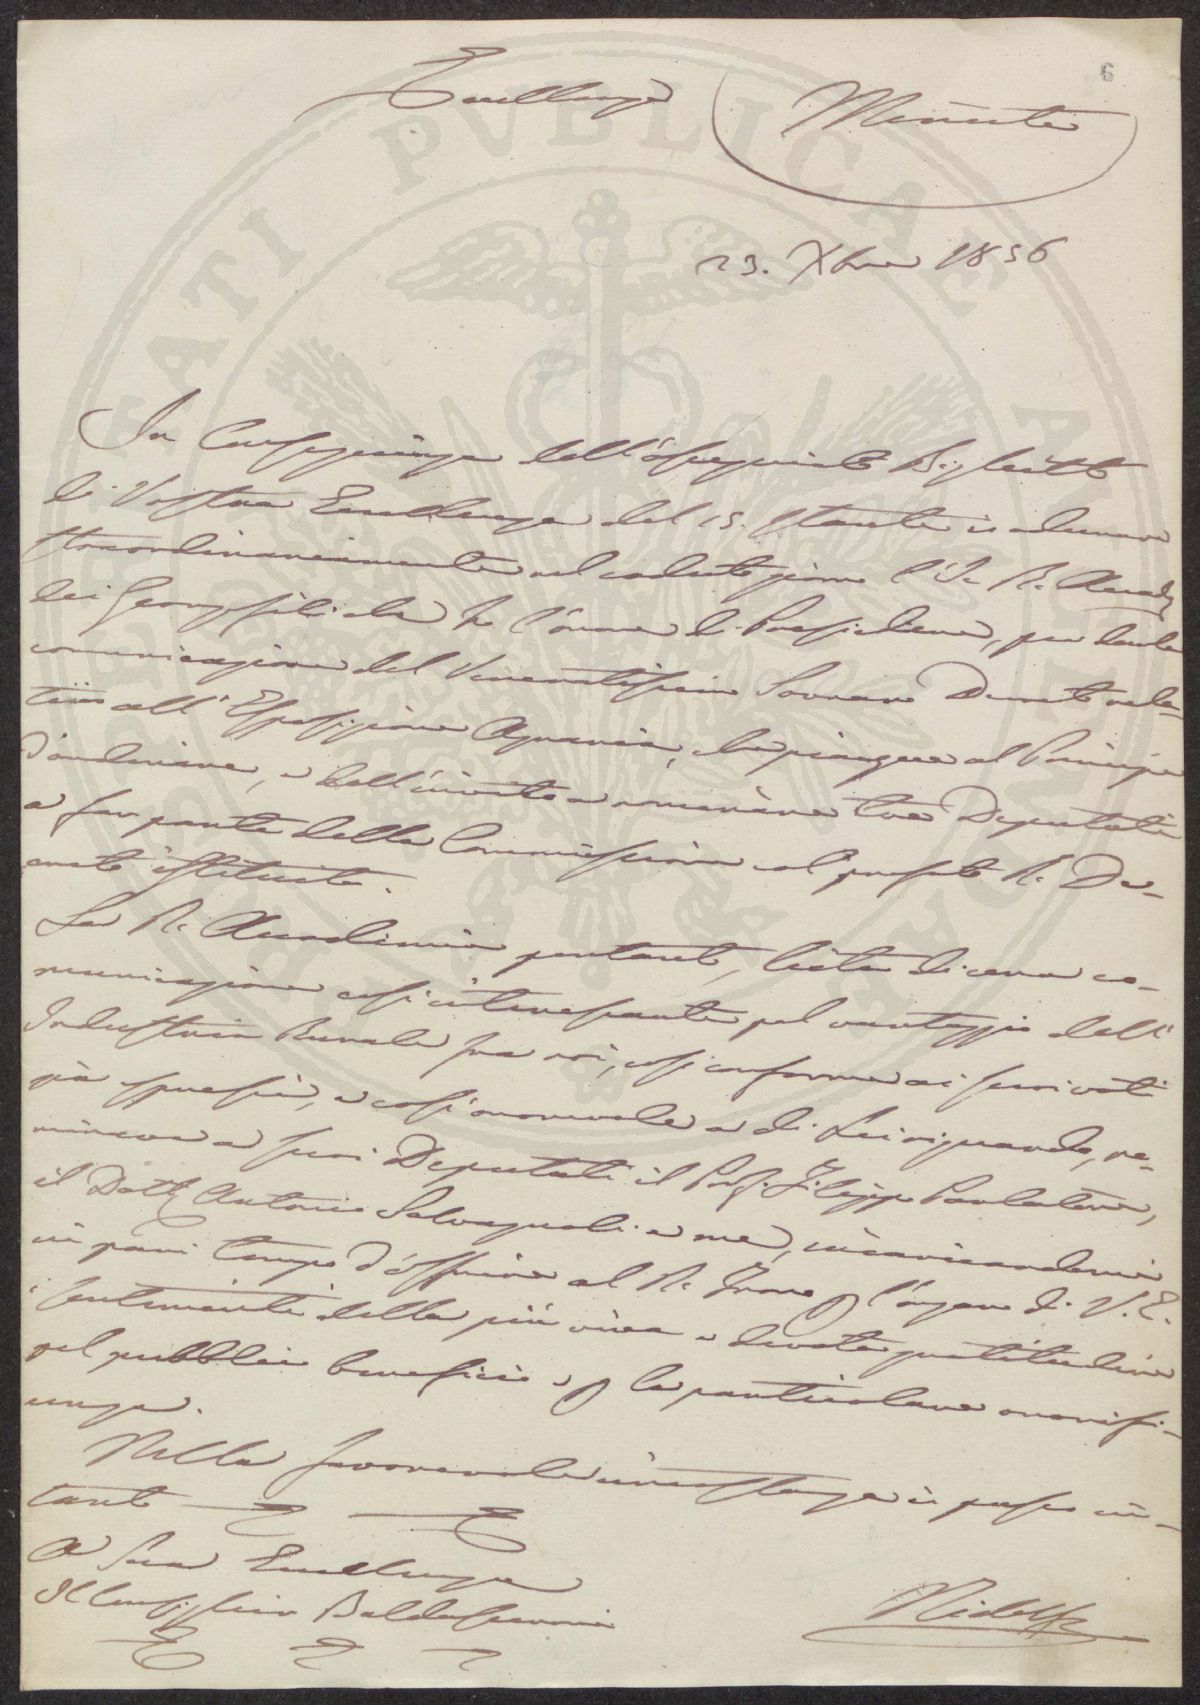 6
Eccellenza
Minuta
23. Xbre 1856
In Conseguenza dell'ossequiato Biglietto
di Vostra Eccellenza del 15. stante io adunava
straordinariamente nel caduto giorno l'I. e R. Accad.
dei Georgofili che ho l'onore di Presiedere, per darle
comunicazione del Veneratissimo Sovrano Decreto rela-
tivo all'Esposizione Agraria, che piacque al Principe
d'ordinare, e dell'invito a nominare tre Deputati
a far parte della Commissione col prefato R. De-
creto istituita.
La R. Accademia pertanto, lieta di una co-
municazione così interessante pel vantaggio dell'
Industria Rurale fra noi, così conforme ai suoi voti
già espressi, e così onorevole a di Lei riguardo, no-
minava a suoi Deputati il Prof. Filippo Parlatore,
il Dott. Antonio Salvagnoli e me, incaricandomi
in pari tempo d'offrire al R. Trono p l'organo di V. E.
i sentimenti della più viva e devota gratitudine
pel pubblico beneficio e p la particolare onorifi-
cenza.
Nella favorevole circostanza io passo in-
tanto
A Sua Eccellenza
Il Consigliere Baldasseroni
Ridolfi
PVBLICAE